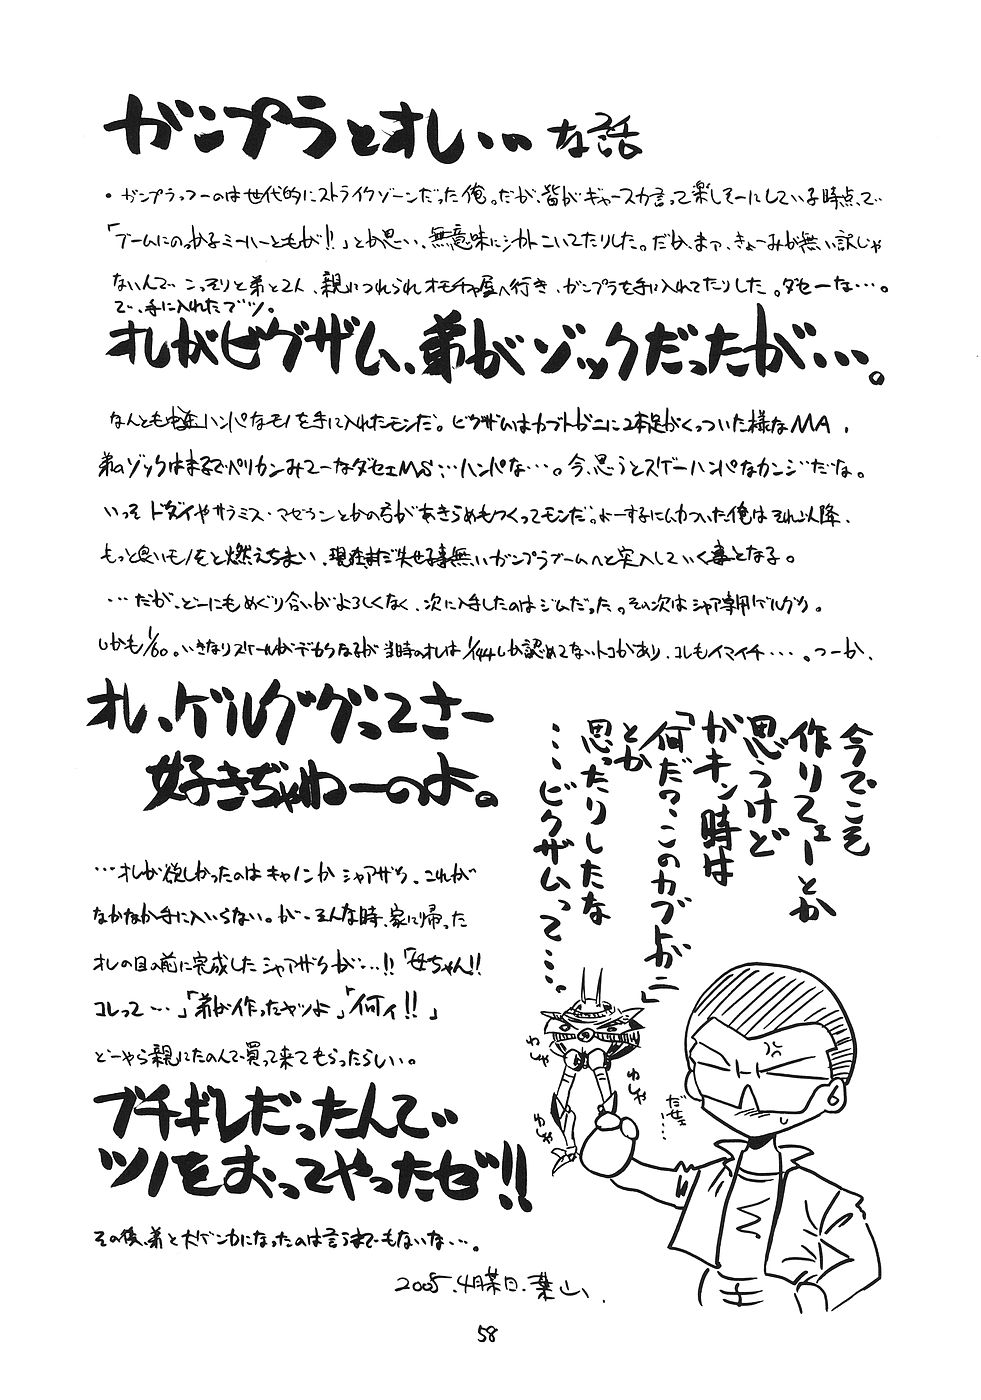 ガンプラとオレ…な話
・ガンプラっつーのは世代的にストライクゾーンだった俺。だが、皆がギャースカ言って楽しそーにしている時点で
「ブームにのっかるミーハーどもが!!」とか思い、無意味にシカトこいてたりした。だが、まァ、きょーみが無い訳じゃ
ないんで こっそりと弟と2人、親につれられオモチャ屋へ行き、ガンプラを手に入れてたりした。ダセーな…。
で、手に入れたブツ。
オレがビグザム、弟がゾックだったが…。
なんとも中途ハンパなモノを手に入れたモンだ。ビグザムはカブトガニに2本足がくっついた様なMA、
弟のゾックはまるでペリカンみてーなダセェMS…ハンパな…。今、思うとスゲーハンパなカンジだな。
いっそ ドダイやサラミス・マゼランとかの方があきらめもつくってモンだ。よーするにムカついた俺はそれ以降、
もっと良いモノをと燃えちまい、現在まだ失せる事無いガンプラブームへと突入していく事となる。
…だが、どーにもめぐり合いがよろしくなく、次に入手したのはジムだった。その次はシャア専用ゲルググ。
しかも1/60。いきなりスケールがデカくなるが当時のオレは1/144しか認めてないトコがあり、コレもイマイチ…。つーか、
オレ、ゲルググってさー
好きぢゃねーのよ。
…オレが欲しかったのはキャノンか シャアザク、これが
なかなか手に入いらない。が、そんな時、家に帰った
オレの目の前に完成したシャアザクが…!!「母ちゃん!!
コレって…」「弟が作ったヤツよ」「何ィ!!」
どーやら親にたのんで買って来てもらったらしい。
ブチギレだったんで
ツノをおってやったゼ!!
その後、弟と大ゲンカになったのは言うまでもないな…。
2005.4月某日.葉山.
今でこそ
作りてェーとか
思うけど
ガキン時は
「何だ?このカブトガニ」
とか
思ったりしたな
…ビグザムって…。
わしゃ
わしゃ
わしゃ
だせェ…
58